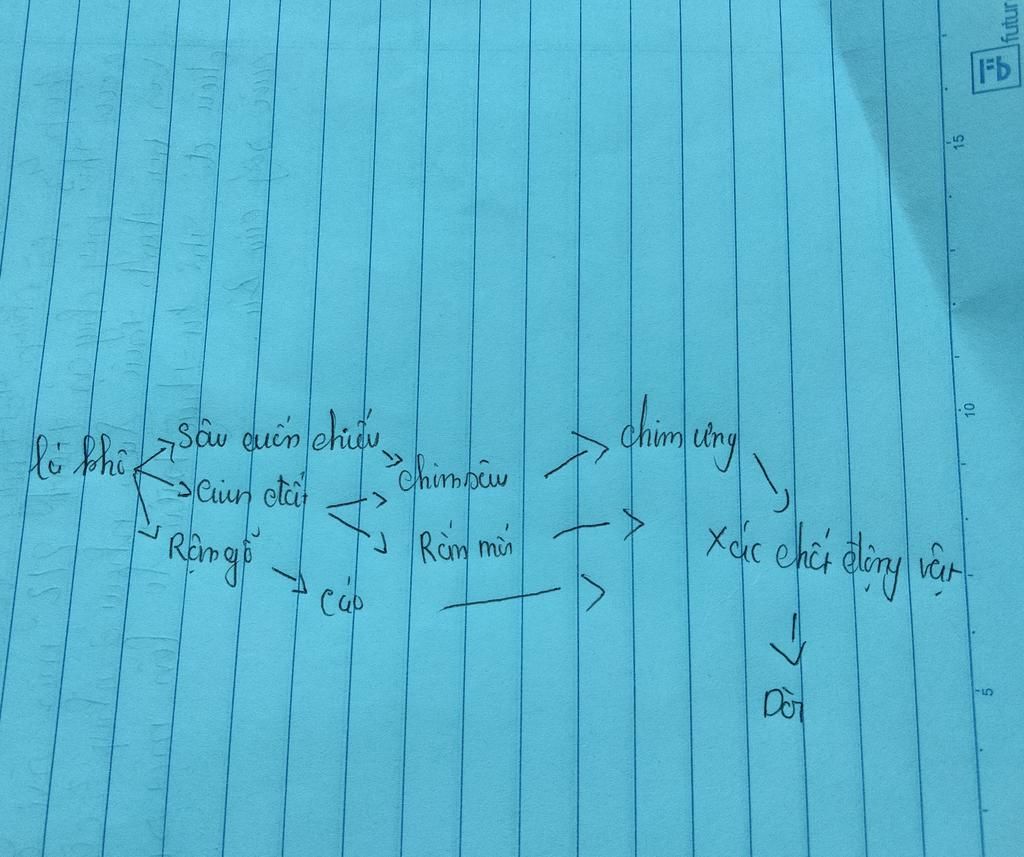 lá khô
sâu quấn chiếu
chim sâu
chim ưng
Giun đất
Rắn mối
Rận gỗ
cáo
Xác chết động vật
Dòi
15
10
5
futur